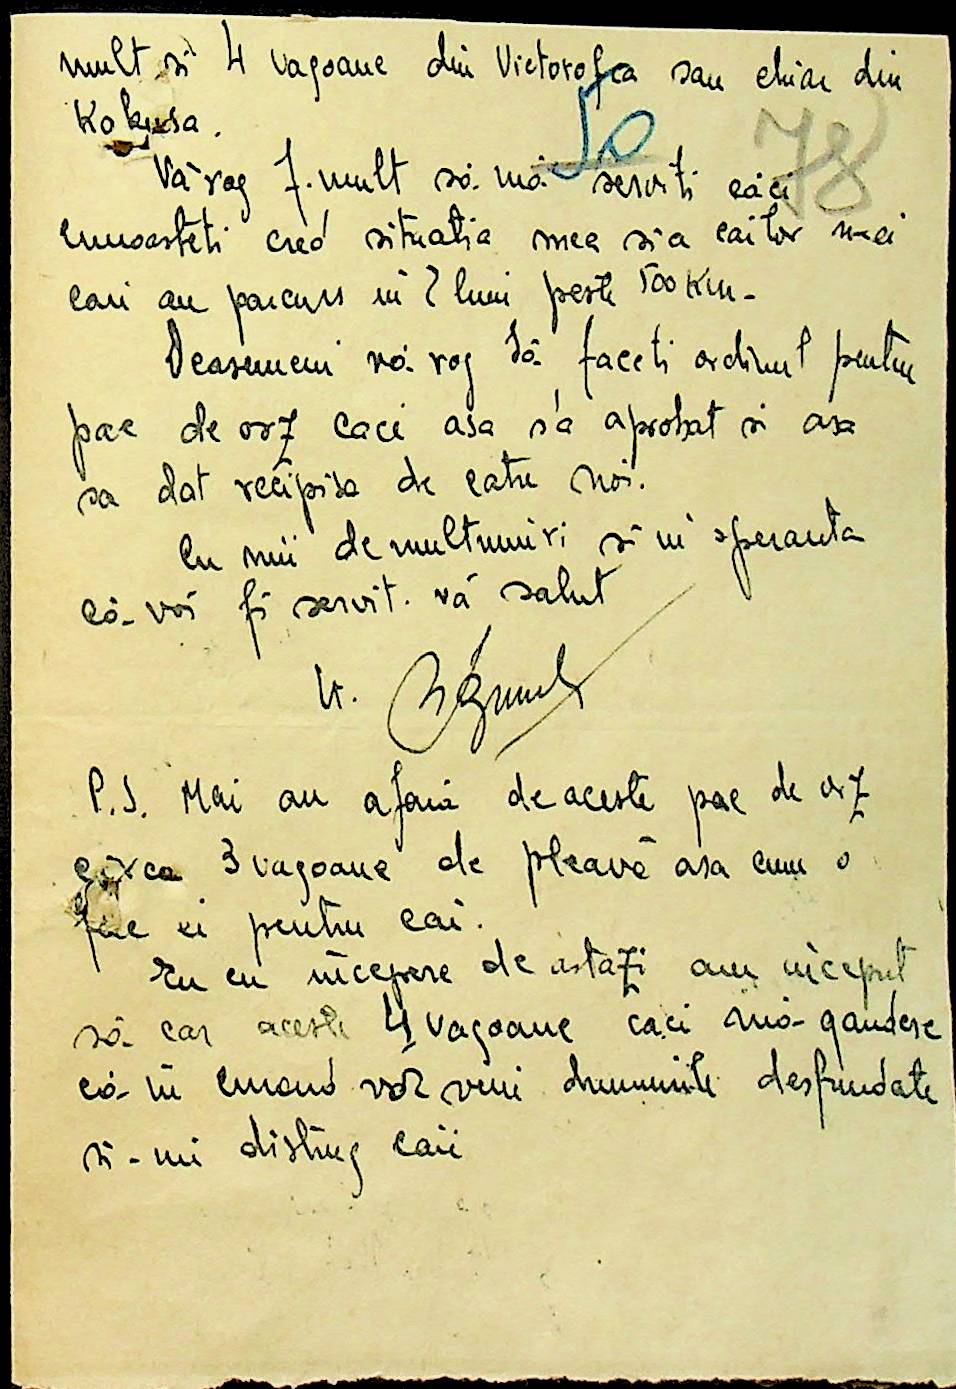 mult si 4 vagoane din Victorofca sau chiar din
Kokusa.
50
78
Vă rog f. mult să mă serviti căci
cunoasteti cred situatia mea si a cailor mei
cari au parcurs in 2 luni peste 500 Km-
Deasemeni vă rog să faceti ordinul pentru
pae de orz caci asa s'a aprobat si asa
sa dat recipisa de catre noi.
Cu mii de multumiri si in speranta
că-voi fi servit. vă salut
P.S. Mai au afară de aceste pae de orz
circa 3 vagoane de pleavă asa cum o
fac ei pentru cai.
Eu cu incepere de astazi am inceput
să car aceste 4 vagoane caci mă-gandesc
că-in curand vor veni drumurile desfundate
si-mi distrug caii